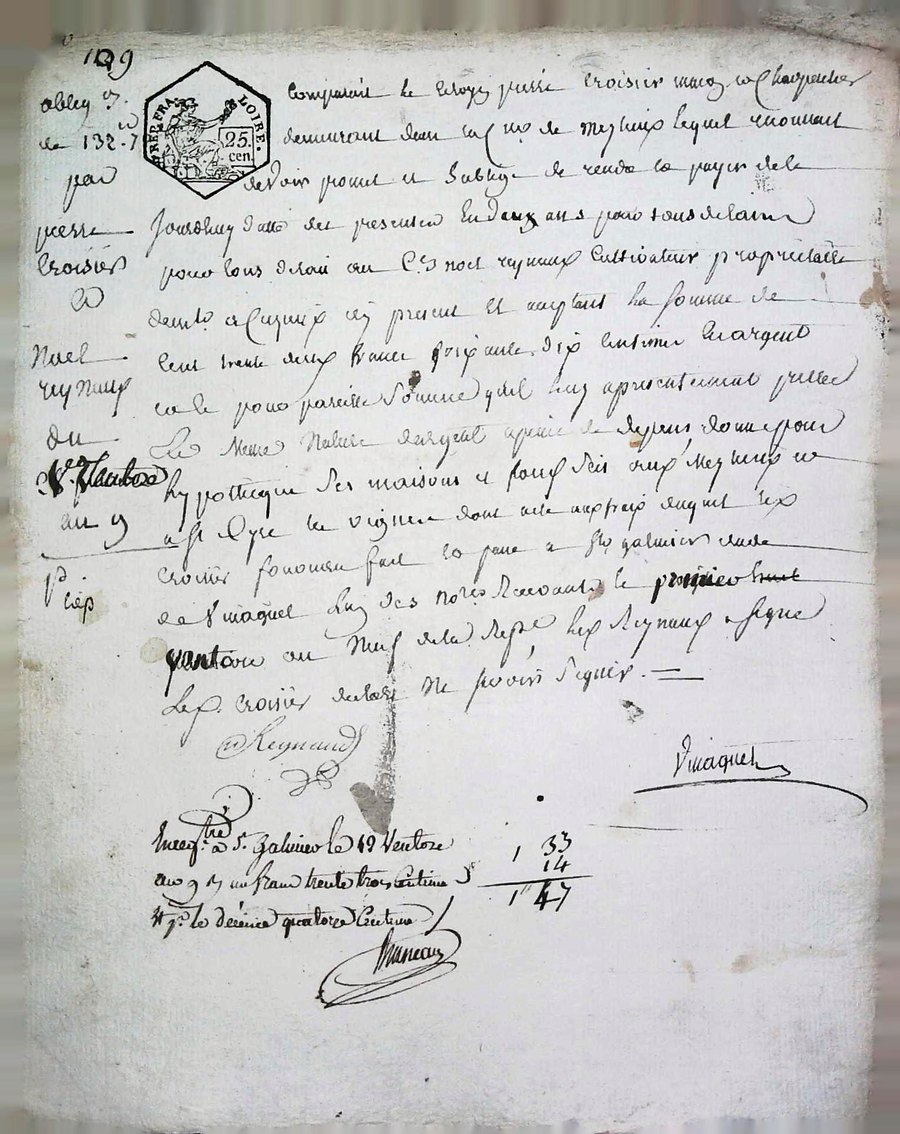 199
oblig.on
de 132.7
par
pierre
Croisier
a
Noel
reynaux
du
1er Ventose
an 9
REP. FRA.
LOIRE.
25.
cen.
Comparait le citoyen pierre Croisier macon et Charpentier
demeurant dans la Cne de Meylieux lequel reconnait
devoir promet et s'oblige de rendre et payer de ce
Jourdhuy datte des presentes En deux ans pour tous delais
pour tous delais au Cen noel reynaux Cultivateur proprietaire
demt a Cuzieux icy present et acceptant la somme de
Cent trente deux francs soixante dix Centimes En argent
et ce pour pareille somme quil luy a presentement prettee
En Meme Nature dargent a peine de depens donne pour
hypotheque ses maisons et fonds sis aux Meylieux et
a St Cyr les vignes dont acte aux frais duquel led
Croisier fait et passe a St galmier etude
de Vinaquet lun des nores recevants le premier
Ventose an Neuf de la Repe led Reynaux a signé
Led. Croisier declaré Ne savoir signer.
Reynaud
Vmaquet
Enregtré a St. Galmier le 19 Ventose
an 9 un franc trente trois Centimes
le décime quatorze Centimes
1 33
14
1 47
Bruneau